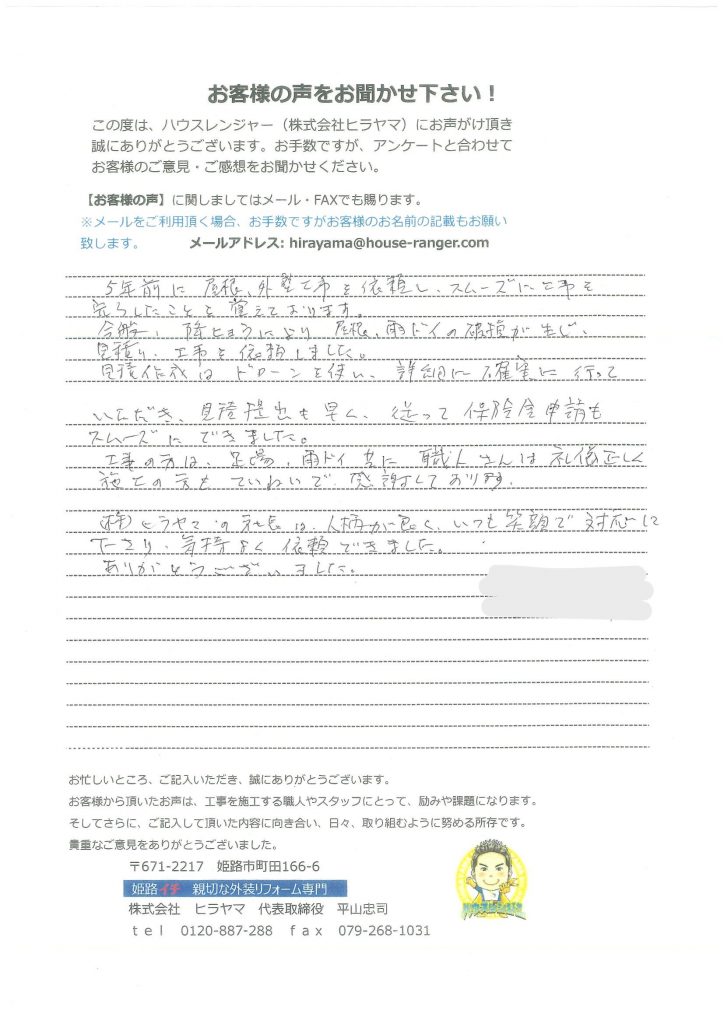 お客様の声をお聞かせ下さい！
この度は、ハウスレンジャー（株式会社ヒラヤマ）にお声がけ頂き
誠にありがとうございます。お手数ですが、アンケートと合わせて
お客様のご意見・ご感想をお聞かせください。
【お客様の声】に関しましてはメール・FAXでも賜ります。
※メールをご利用頂く場合、お手数ですがお客様のお名前の記載もお願い
致します。　　メールアドレス: hirayama@house-ranger.com
5年前に屋根、外壁工事を依頼し、スムーズに工事を
完了したことを覚えております。
今般、降ひょうにより屋根、雨ドイの破損が生じ、
見積り、工事を依頼しました。
見積作成はドローンを使い、詳細に確実に行って
いただき、見積提出も早く、従って保険金申請も
スムーズにできました。
工事の方は、足場、雨ドイ共に職人さんは礼儀正しく
施工の方もていねいで感謝しております。
(株)ヒラヤマの社長は、人柄が良く、いつも笑顔で対応して
下さり、気持よく依頼できました。
ありがとうございました。
お忙しいところ、ご記入いただき、誠にありがとうございます。
お客様から頂いたお声は、工事を施工する職人やスタッフにとって、励みや課題になります。
そしてさらに、ご記入して頂いた内容に向き合い、日々、取り組むように努める所存です。
貴重なご意見をありがとうございました。
〒671-2217　姫路市町田166-6
姫路イチ　親切な外装リフォーム専門
株式会社　ヒラヤマ　代表取締役　平山忠司
ｔｅｌ　0120-887-288　ｆａｘ　079-268-1031
ハウスレンジャー